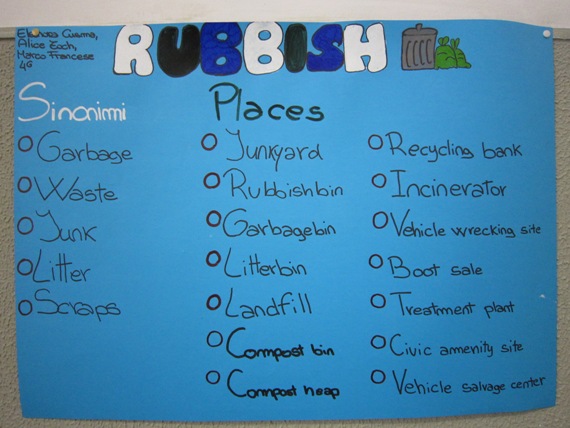 Alice
Marco Francese
4G
RUBBISH
Sinonimi
Garbage
Waste
Junk
Litter
Scraps
Places
Junkyard
Rubbish bin
Garbage bin
Litter bin
Landfill
Compost bin
Compost heap
Recycling bank
Incinerator
Vehicle wrecking site
Boot sale
Treatment plant
Civic amenity site
Vehicle salvage center